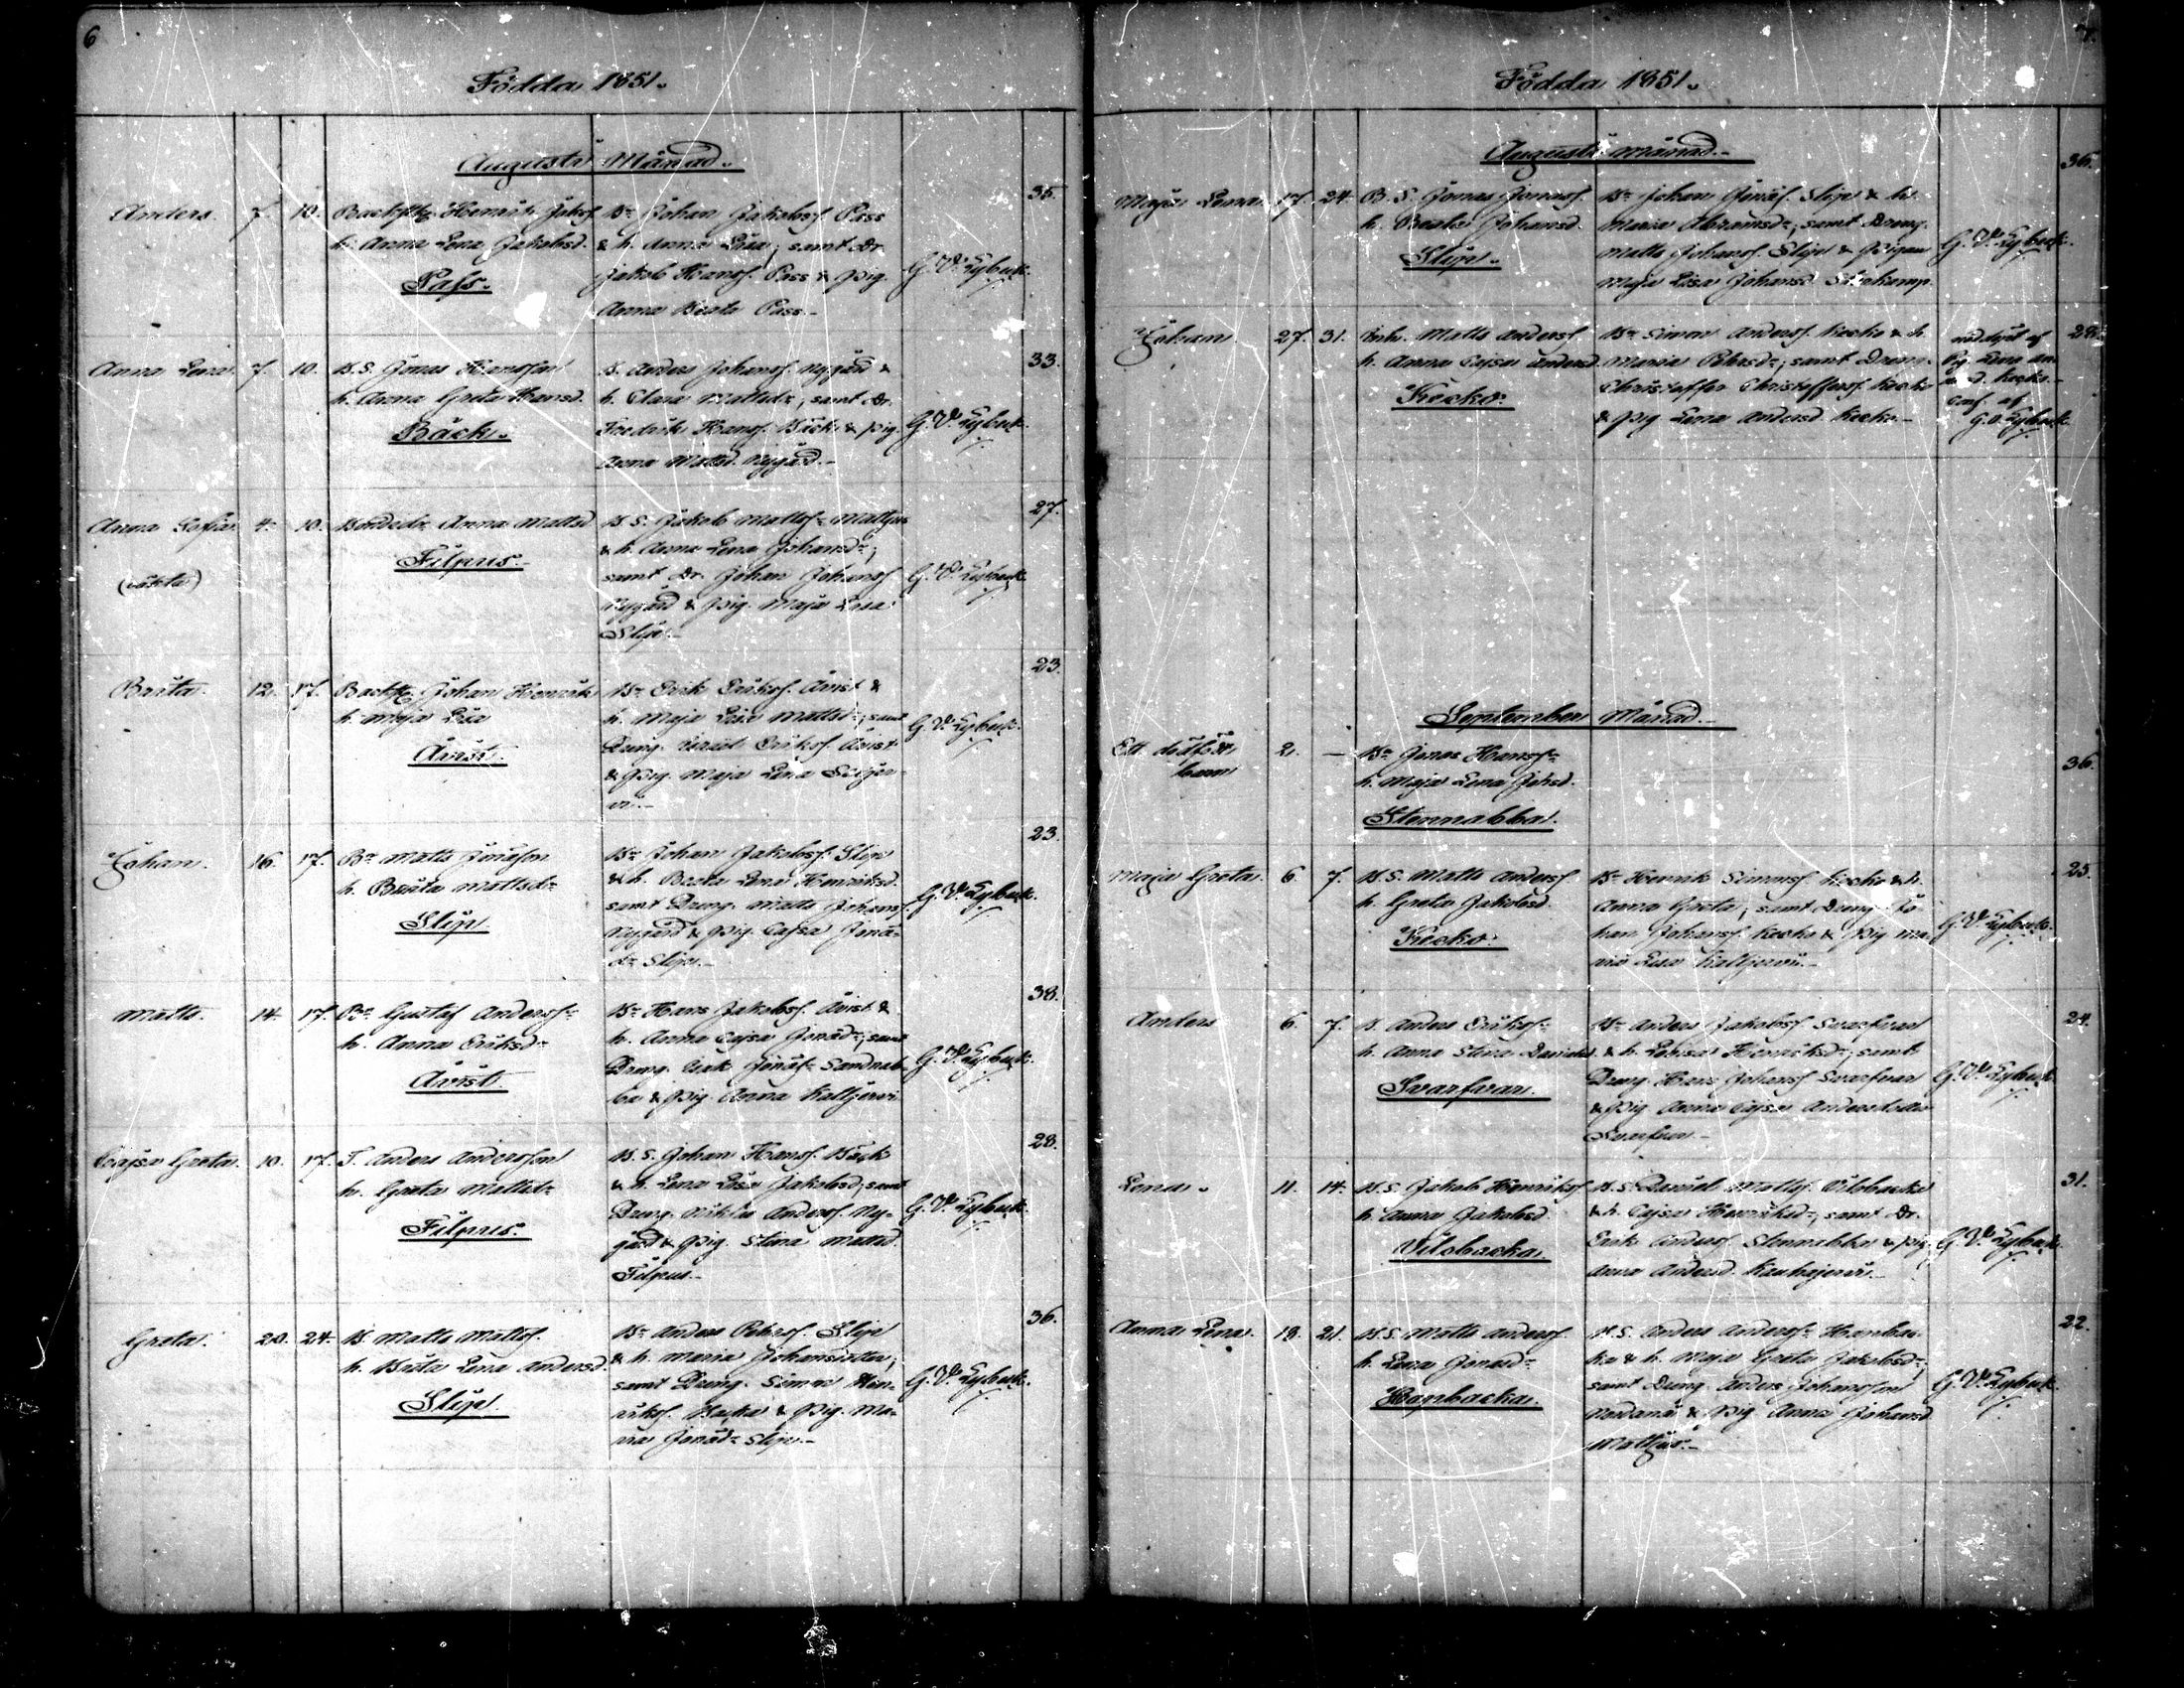 6
Födda 1851.
Augusti Månad.
35.
Anders. 7. 10. Backstu. Henrik Jakobs.
h. Anna Lena Jakobsd.
Pass.
Bn Johan Jakobsf. Pass
& h. Anna Lisa; samt Dr.
Jakob Hansf. Pass & Pig.
Anna Beata Pass.-
G. V. Lybeck.
33.
Anna Lena. 7. 10. B.S. Jonas Hansson
h. Anna Greta Hansd.
Bäck.
B. Anders Johansf. Nygård &
h. Clara Mattsdr, samt Dr.
Fredrik Hansf. Bäck & pig.
Anna Mattsd. Nygård.-
G. V. Lybeck.
27.
Anna Sofia 4. 10. Bondedr Anna Mattsd
(oäkta)
Filpus.
B.S. Jakob Mattsf. Mattjus
& h. Anna Lena Johansdr;
samt Dr. Johan Johansf
Nygård & Pig. Maja Lisa
Slip.-
G. V. Lybeck.
23.
Brita. 12. 17. Backstu. Johan Henriks
h. Maja Lisa
Åvist.
Bn Erik Eriksf. Åvist &
h. Maja Lisa Mattsdr; samt
Dreng. Eriksf. Åvist
& Pig. Maja Lena
G. V. Lybeck.
23.
Johan. 16. 17. Bn Matts Jonasson
h. Brita Mattsdr
Slip
Bn Johan Jakobsf. Slip
& h. Beata Lena Henriksd.
samt Dreng. Matts Johansf
Nygård & Pig. Cajsa Jona-
dr Slip.-
G. V. Lybeck.
38.
Matts. 14. 17. Bn Gustaf Andersf.
h. Anna Eriksdr
Åvist.
Bn Hans Jakobsf. Åvist &
h. Anna Cajsa Jonadr; samt
Dreng. Erik Jonäs. Sandnab-
ba & Pig. Anna Kaltjärvi.
G. V. Lybeck.
28.
Cajsa Greta. 10. 17. T. Anders Andersson
h. Greta Mattsdr
Filpus.
B.S. Johan Hansf. Bäck
& h. Lena Lisa Jakobsd; samt
Dreng. Niklas Andersf. Ny-
gård & Pig. Stina Mattsd.
Filpus.-
G. V. Lybeck.
36.
Greta. 20. 24. B Matts Mattsf.
h. Brita Lena Andersd.
Slip.
Bn Anders Pehrsf. Slip
& h. Maria Johansdotter;
samt Dreng. Simon Hen-
riksf. Backa & Pig. Ma-
ria Jonädr Slip.-
G. V. Lybeck.
7.
Födda 1851.
Augusti månad.-
36.
Maja Lena 17. 24. B.S. Jonas Jonasf.
h. Beata Johansd.
Slip.
Bn Johan Jonäs. Slip & h.
Maria Abramsdr; samt Dreng.
Matts Johansf. Slip & Pigan
Maja Lisa Johansd.
G. V. Lybeck.
28.
Johan. 27. 31. Inh. Matts Andersf
h. Anna Cajsa Andersd
Kecko.
Bn Simon Andersf. Kecko & h
Maria Pehrsdr; samt Dreng.
Christoffer Christoffersf. Kecko
& Pig Lena Andersd Kecko.-
nöddöpt af
Pig. Lena An-
dersd. Kecko.-
Conf. af
G. V. Lybeck
September Månad.-
36.
Ett dödfödt 2. — Bn Jonas Hansf.
barn
h. Maja Lena Johsd.
Stennabba.
25.
Maja Greta. 6. 7. B.S. Matts Andersf.
h. Greta Jakobsd.
Kecko.
Bn Henrik Simonsf. Kecko & h.
Anna Greta; samt Dreng. Jo-
han Johansf. Kecko & Pig Ma-
ria Lisa Kaltjärvi.-
G. V. Lybeck.
24.
Anders 6. 7. B. Anders Eriksf.
h. Anna Stina Danielsd
Svarfvar.
Bn Anders Jakobsf Svarfvar
& h. Lovisa Henriksdr; samt
Dreng. Hans Johansf Svarfvar
& Pig Anna Cajsa Andersdotter
Svarfvar.-
G. V. Lybeck
31.
Lena. 11. 14. B.S. Jakob Henriksf
h. Anna Jakobsd.
Vilobacka.
B.S. Daniel Mattsf. Vilobacka
& h. Cajsa Henriksdr; samt Dr.
Erik Andersf Stennabba & Pig.
Anna Andersd. Kauhajärvi.-
G. V. Lybeck.
22.
Anna Lena. 19. 21. B.S. Matts Andersf.
h. Lena Jonasdr
Hanbacka.
B.S. Anders Andersf. Hanbac-
ka & h. Maja Greta Jakobsdr;
samt Dreng. Anders Johansson
& Pig Anna Johansd
Mattjus.-
G. V. Lybeck.